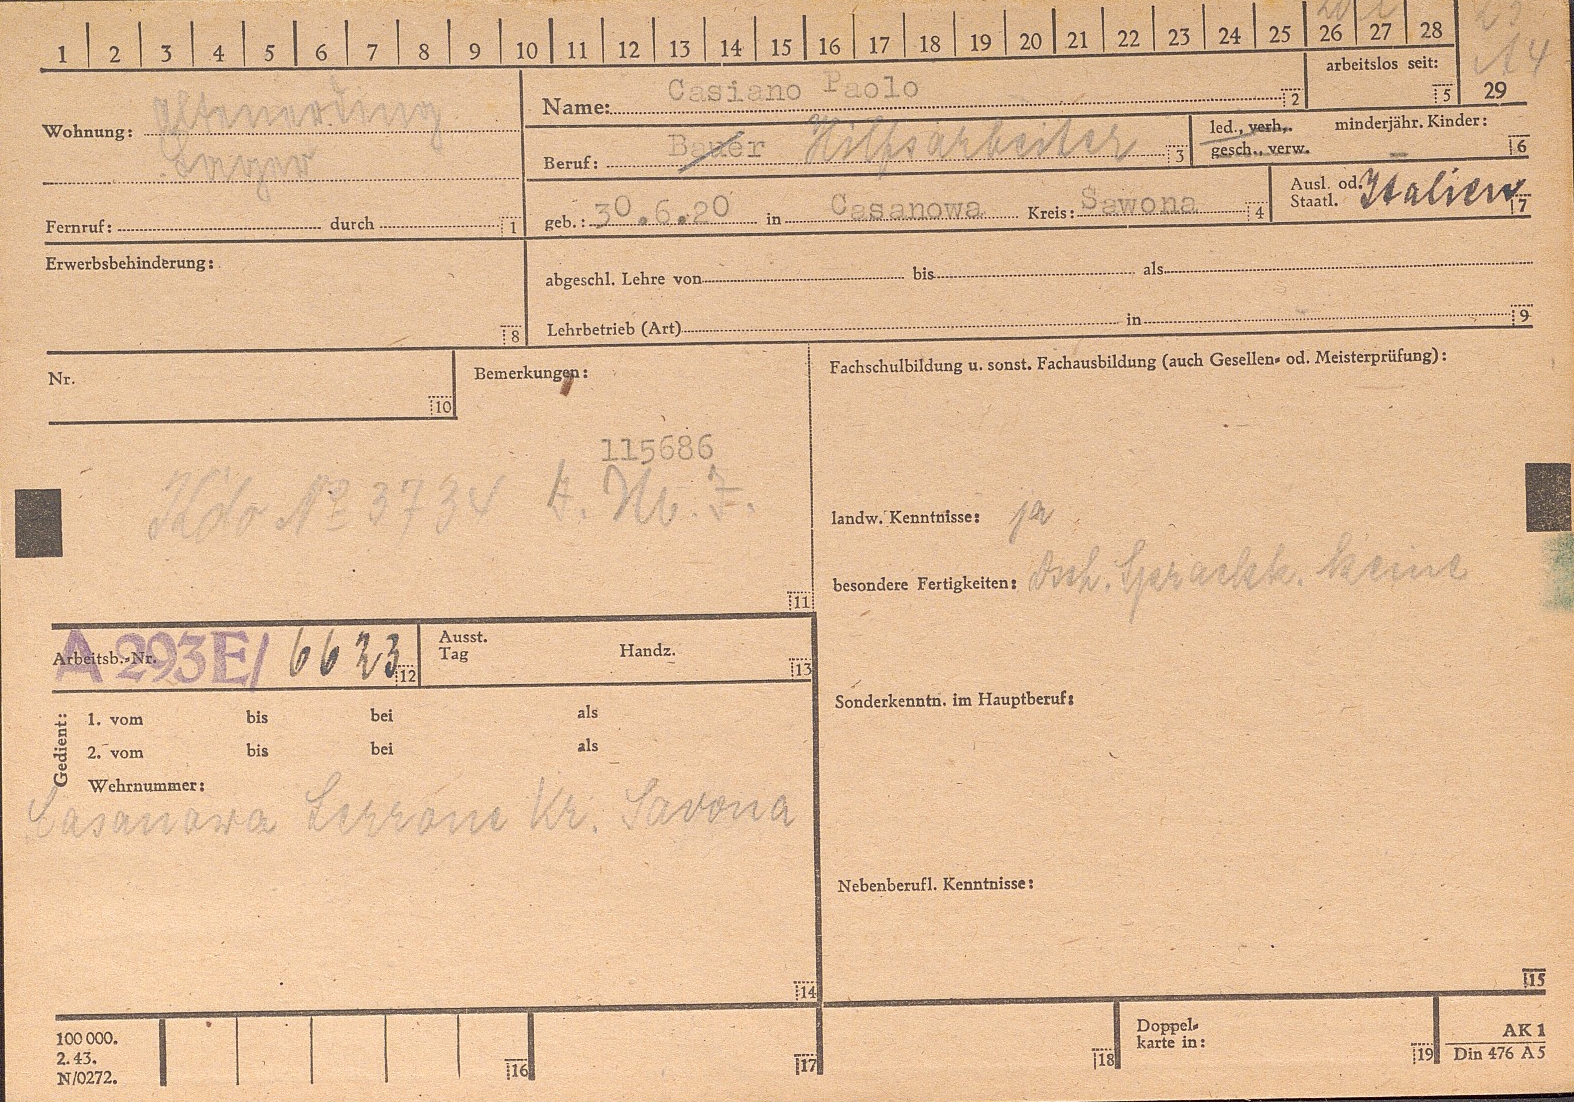 1 2 3 4 5 6 7 8 9 10 11 12 13 14 15 16 17 18 19 20 21 22 23 24 25 26 27 28
arbeitslos seit: 5
29
14
Wohnung: Altenerding
Lager
Fernruf: durch 1
Name: Casiano Paolo 2
Beruf: Bauer Hilfsarbeiter 3
led., verh., minderjähr. Kinder:
gesch., verw. – 6
geb.: 30.6.20 in Casanowa Kreis: Sawona 4
Ausl. od. Italien
Staatl. 7
Erwerbsbehinderung:
8
abgeschl. Lehre von bis als
Lehrbetrieb (Art) in 9
Nr.
10
Bemerkungen:
115686
Kdo No 3734
11
Fachschulbildung u. sonst. Fachausbildung (auch Gesellen- od. Meisterprüfung):
landw. Kenntnisse: ja
besondere Fertigkeiten: Dsch. Sprachk. keine
Sonderkenntn. im Hauptberuf:
Nebenberufl. Kenntnisse:
15
Arbeitsb.-Nr. A 293E/ 6623 12
Ausst.
Tag Handz. 13
Gedient:
1. vom bis bei als
2. vom bis bei als
Wehrnummer:
Casanowa Lerrone Kr. Savona
14
100 000.
2. 43.
N/0272.
16
17
18
Doppel-
karte in: 19
AK 1
Din 476 A 5